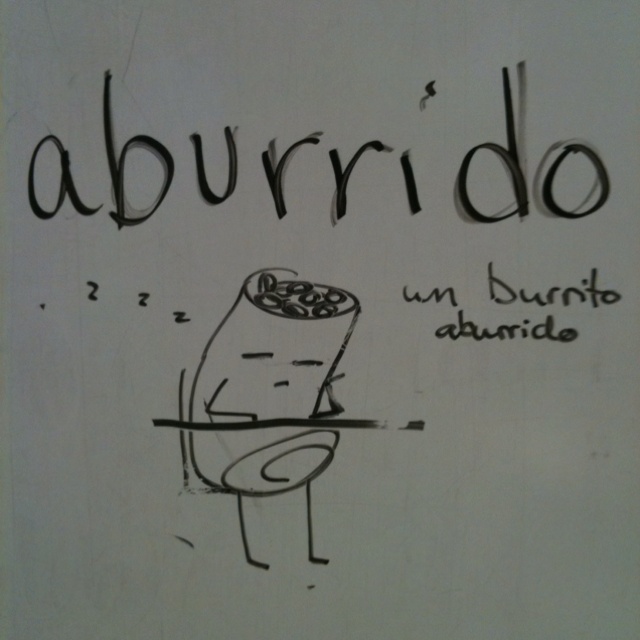 aburrido
. z z z
un burrito
aburrido